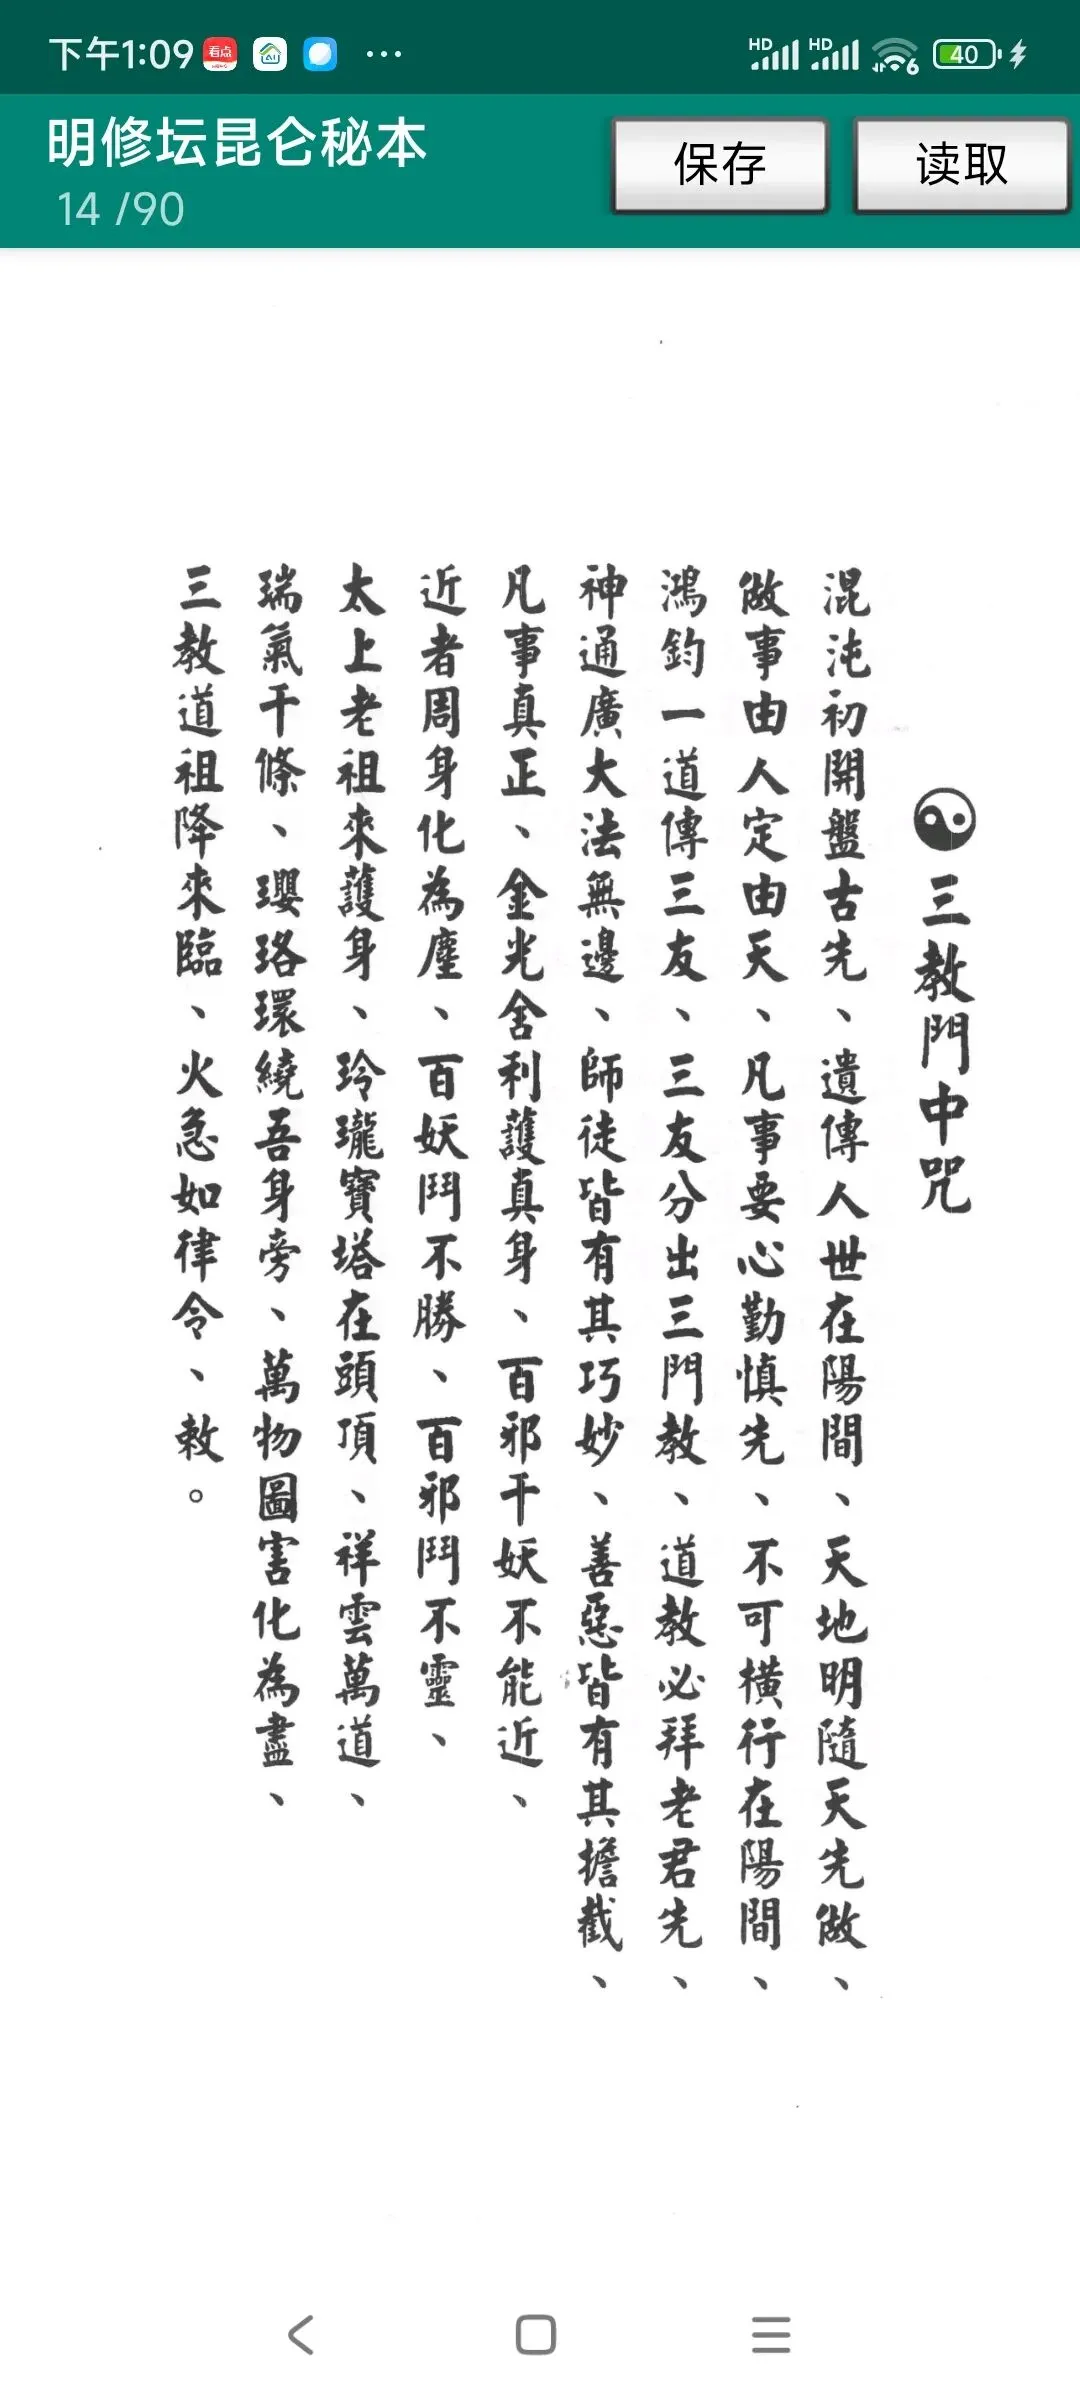 下午1:09 看点 AI ... HD HD 6 40
明修坛昆仑秘本 保存 读取
14 /90
三教門中咒
混沌初開盤古先、遺傳人世在陽間、天地明隨天先做、
做事由人定由天、凡事要心勤慎先、不可橫行在陽間、
鴻鈞一道傳三友、三友分出三門教、道教必拜老君先、
神通廣大法無邊、師徒皆有其巧妙、善惡皆有其擔截、
凡事真正、金光舍利護真身、百邪干妖不能近、
近者周身化為塵、百妖鬥不勝、百邪鬥不靈、
太上老祖來護身、玲瓏寶塔在頭頂、祥雲萬道、
瑞氣千條、瓔珞環繞吾身旁、萬物圖害化為盡、
三教道祖降來臨、火急如律令、敕。